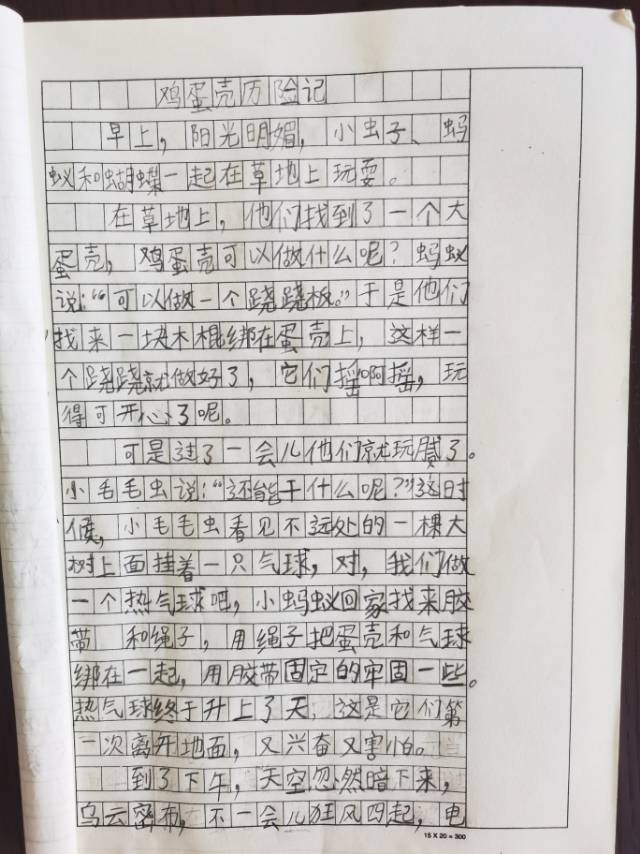 鸡蛋壳历险记
早上，阳光明媚，小虫子、蚂
蚁和蝴蝶一起在草地上玩耍。
在草地上，他们找到了一个大
蛋壳，鸡蛋壳可以做什么呢？蚂蚁
说：“可以做一个跷跷板。”于是他们
找来一块木棍绑在蛋壳上，这样一
个跷跷就做好了，它们摇啊摇，玩
得可开心了呢。
可是过了一会儿他们就玩腻了。
小毛毛虫说：“还能干什么呢？”这时
候，小毛毛虫看见不远处的一棵大
树上面挂着一只气球，对，我们做
一个热气球吧，小蚂蚁回家找来胶
带 和绳子，用绳子把蛋壳和气球
绑在一起，用胶带固定的牢固一些。
热气球终于升上了天，这是它们第
一次离开地面，又兴奋又害怕。
到了下午，天空忽然暗下来，
乌云密布，不一会儿狂风四起，电
15 X 20 = 300